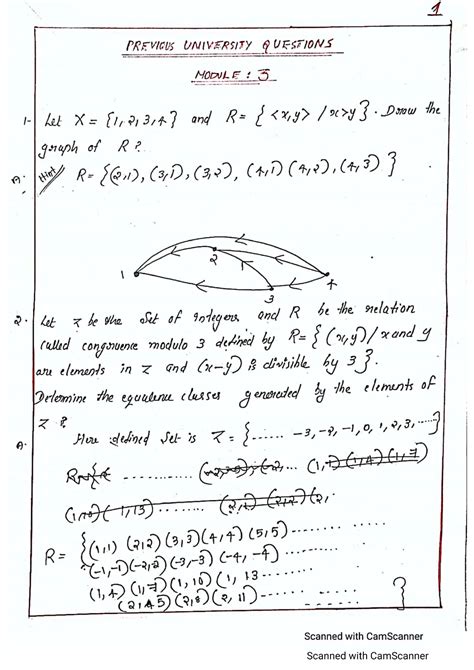 1
PREVIOUS UNIVERSITY QUESTIONS
MODULE : 3
1- Let X = {1,2,3,4} and R = {<x,y> / x>y}. Draw the
graph of R?
A: Hint R = {(2,1), (3,1), (3,2), (4,1) (4,2), (4,3)}
1 2 3 4
2. Let Z be the set of integers and R be the relation
called congruence modulo 3 defined by R = {(x,y) / x and y
are elements in Z and (x-y) is divisible by 3}.
Determine the equivalence classes generated by the elements of
Z ?
A. Here defined set is Z = {...... -3, -2, -1, 0, 1, 2, 3, .....}
(1,4) (1,7)
(1,10) (1,13) ...... (2,2) (2,
R = {(1,1) (2,2) (3,3) (4,4) (5,5) ......
(-1,-1) (-2,-2) (-3,-3) (-4,-4) ......
(1,4) (1,7) (1,10) (1, 13 ......
(2,8) (2,11) ...... }
Scanned with CamScanner
Scanned with CamScanner